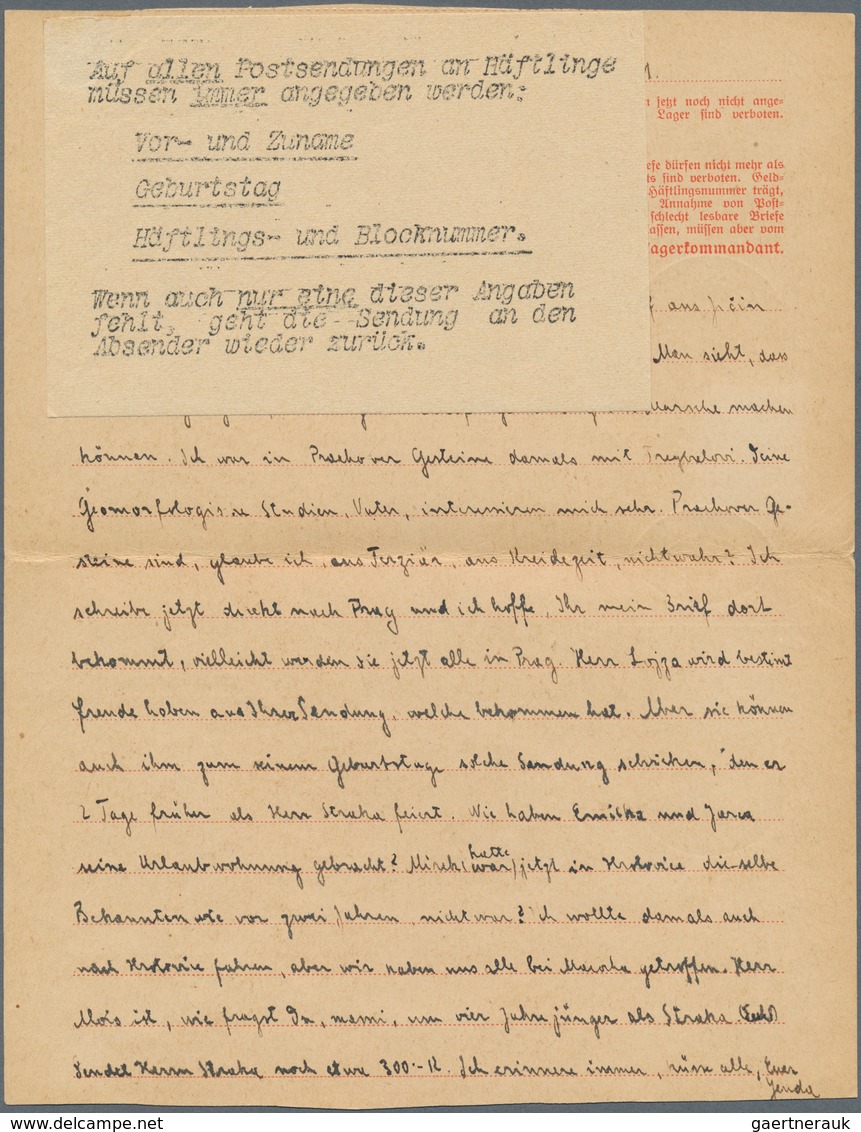 Auf allen Postsendungen an Häftlinge
müssen immer angegeben werden:
Vor- und Zuname
Geburtstag
Häftlings- und Blocknummer.
Wenn auch nur eine dieser Angaben
fehlt, geht die Sendung an den
Absender wieder zurück.
1.
n jetzt noch nicht ange-
Lager sind verboten.
efe dürfen nicht mehr als
ts sind verboten. Geld-
Häftlingsnummer trägt,
Annahme von Post-
schlecht lesbare Briefe
assen, müssen aber vom
agerkommandant.
f aus Jičin
Man sieht, das
Marsche machen
können. Ich war in Prachover Gesteine damals mit Deine
Geomorfologis Studien, Vater, interesieren mich sehr. Prachover Ge-
steine sind, glaube ich, aus Terziär, aus Kreidezeit, nicht wahr? Ich
schreibe jetzt direkt nach Prag und ich hoffe, Ihr mein Brief dort
bekommt, vielleicht werden sie jetzt alle in Prag. Herr Lojza wird bestimt
freude haben aus Ihrer Sendung, welche bekommen hat. Aber sie können
auch ihm zum seinem Geburtstage solche Sendung schicken, den er
2 Tage früher als Herr Straka feiert. Wie haben Emilka und Jarca
seine Urlaubwohnung gebracht? Mirek (war) hatte jetzt in Hrotovice die selbe
Bekannten wie vor zwei Jahren, nicht war? Ich wollte damals auch
nach Hrotovice fahren, aber wir haben uns alle bei Macocha getroffen. Herr
Alois ist, wie fragst Du, mami, um vier Jahre jünger als Straka
Sendet Herrn Straka noch etwa 300·-K. Ich erinnere immer, küsse alle, Euer
Jenda
gaertnerauk